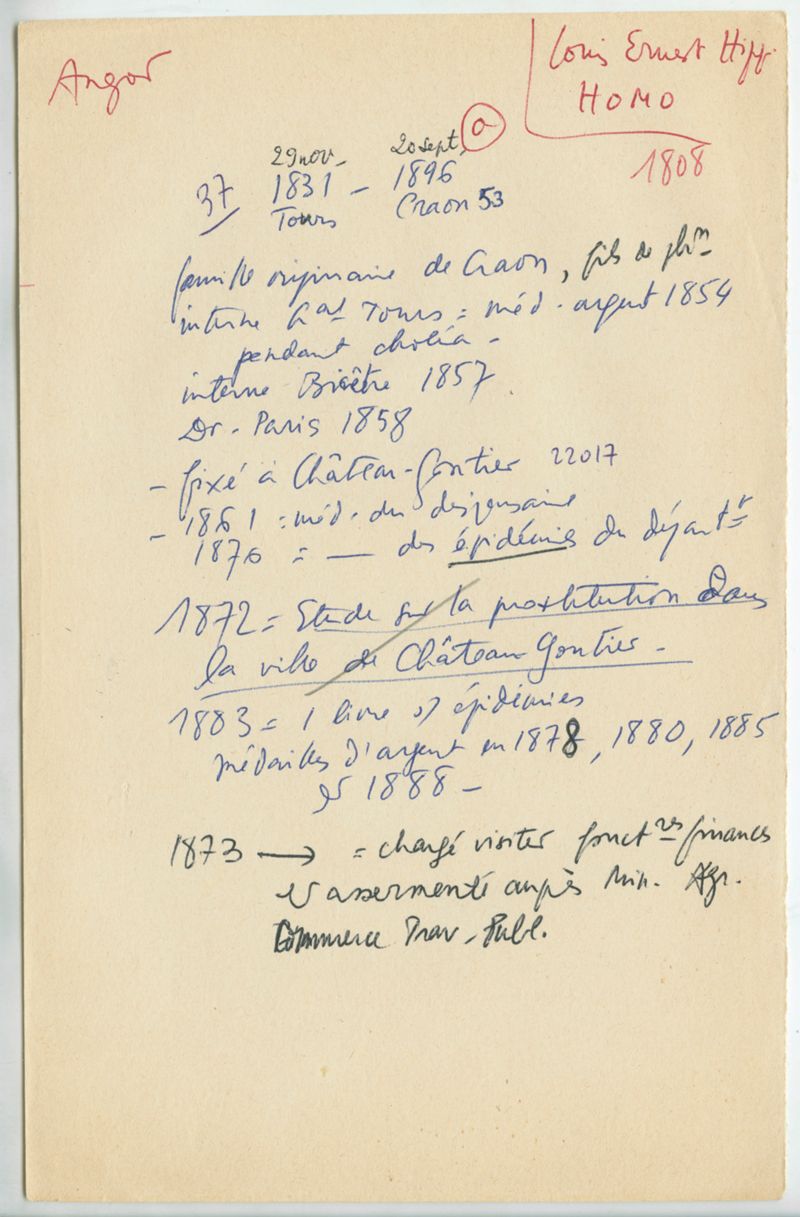 Angor
Louis Ernest Hipp.
HOMO
1808
a
29 nov - 20 sept.
37 1831 - 1896
Tours Craon 53
famille originaire de Craon, fils de phien
interne Gal Tours = méd. argent 1854
pendant choléra -
interne Bicêtre 1857
Dr. Paris 1858
- fixé à Château-Gontier 22017
- 1861 : méd. du dispensaire
1876 = — des épidémies du départt
1872 = Etude sur la prostitution dans
la ville de Château-Gontier -
1883 = 1 livre s/ épidémies
médailles d'argent en 1878, 1880, 1885
et 1888 -
1873 → = chargé visiter fonctres finances
et assermenté auprès Min. Agr.
Commerce Trav. Publ.